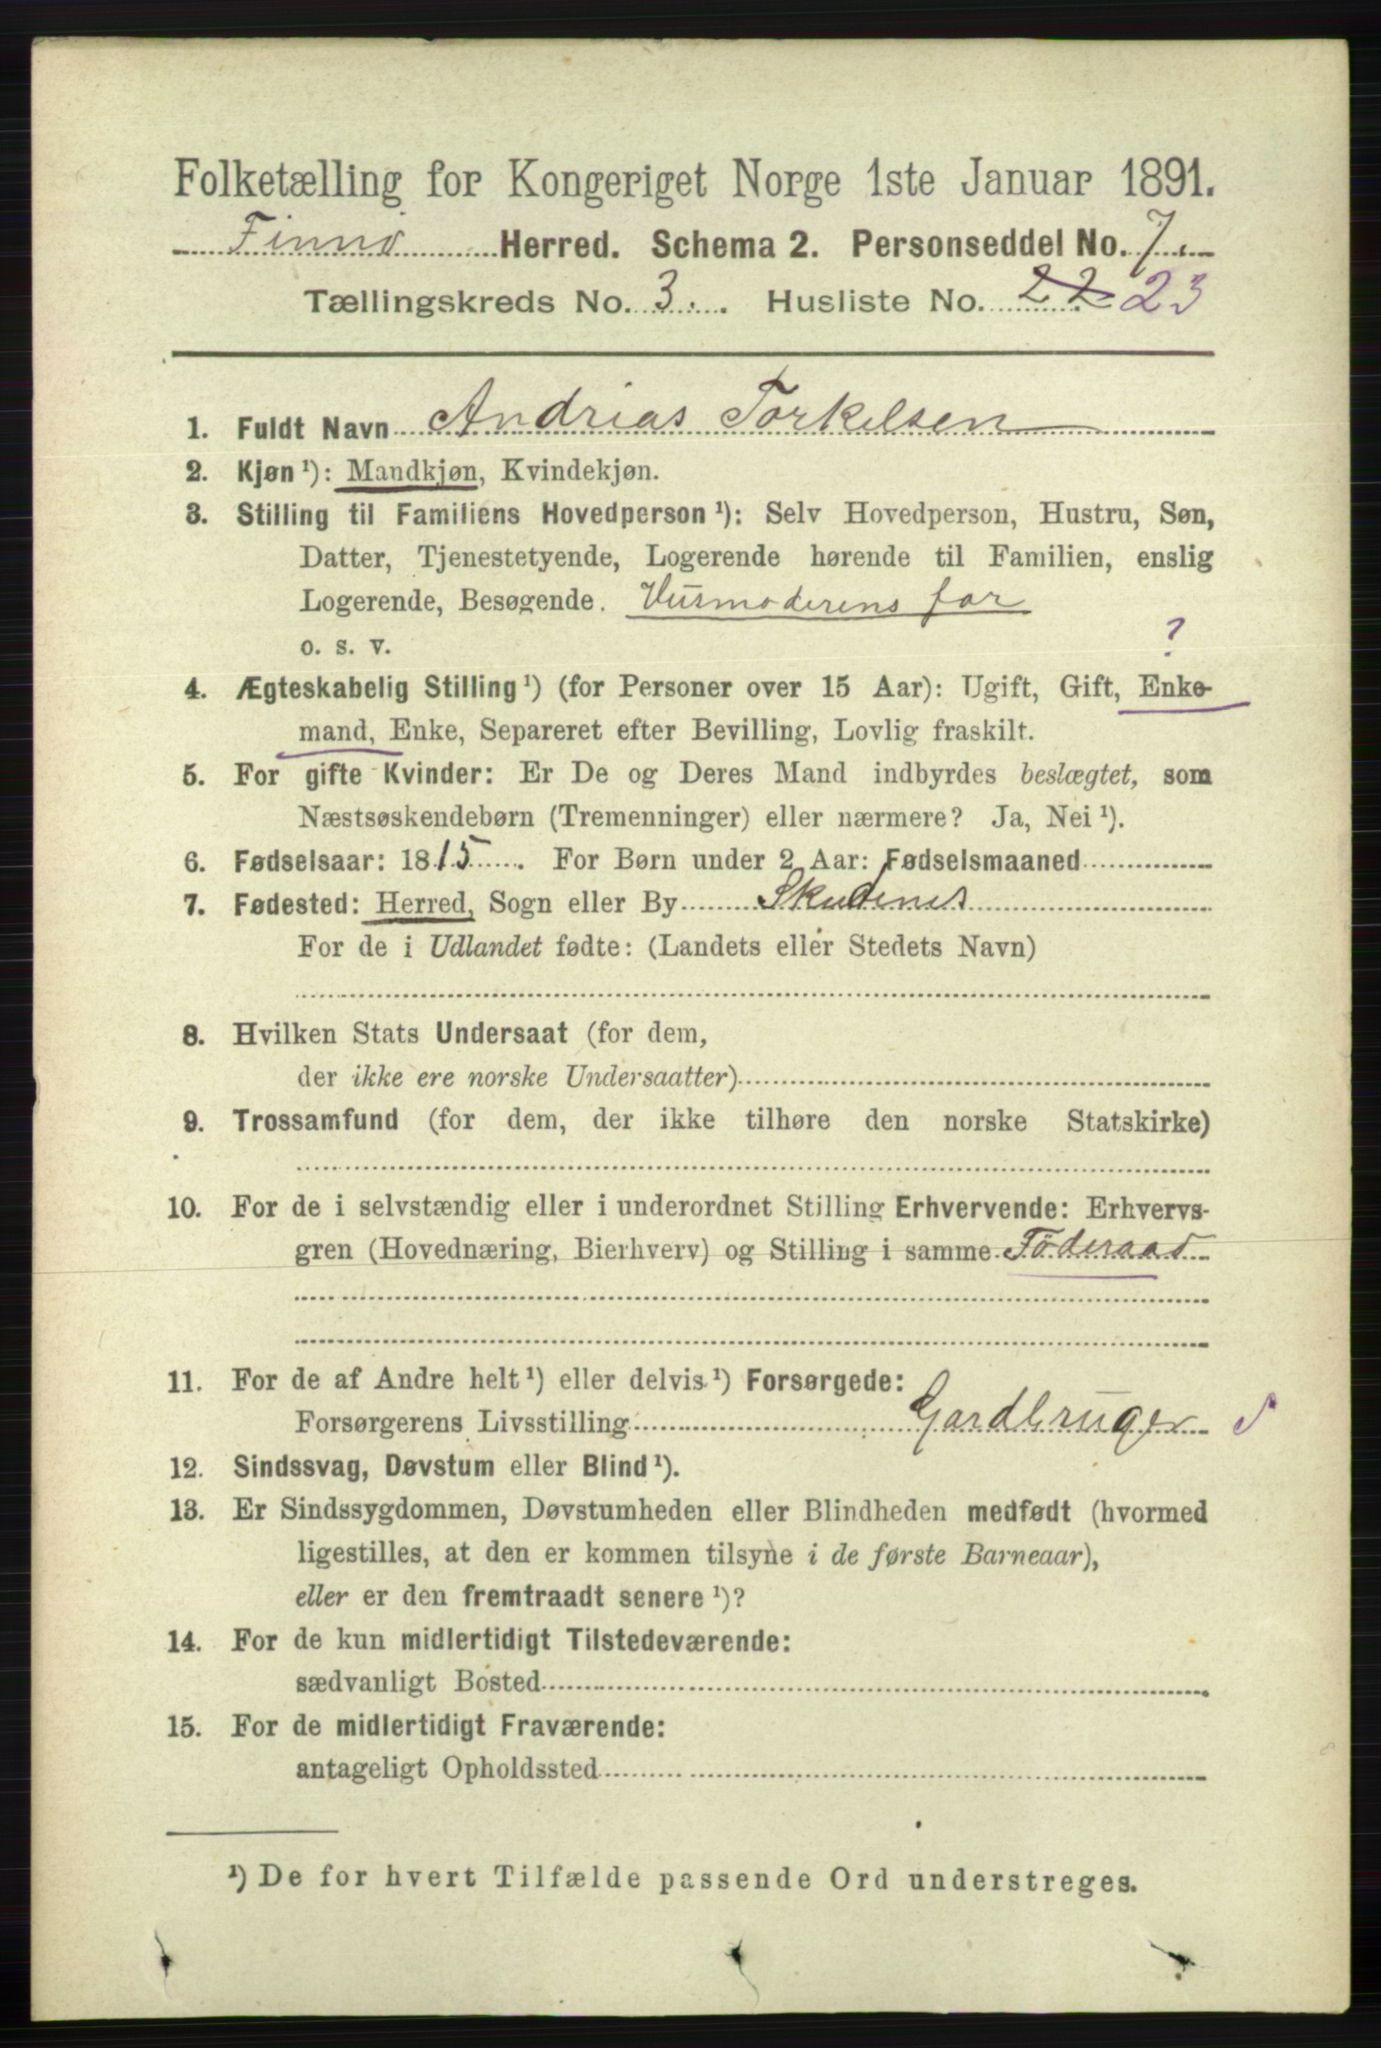 Folketælling for Kongeriget Norge 1ste Januar 1891.
Finnø Herred. Schema 2. Personseddel No. 7.
Tællingskreds No. 3. Husliste No. 22 23
1. Fuldt Navn Andrias Torkelsen
2. Kjøn ¹): Mandkjøn, Kvindekjøn.
3. Stilling til Familiens Hovedperson ¹): Selv Hovedperson, Hustru, Søn,
Datter, Tjenestetyende, Logerende hørende til Familien, enslig
Logerende, Besøgende. Husmoderens far
o. s. v.
?
4. Ægteskabelig Stilling ¹) (for Personer over 15 Aar): Ugift, Gift, Enke-
mand, Enke, Separeret efter Bevilling, Lovlig fraskilt.
5. For gifte Kvinder: Er De og Deres Mand indbyrdes beslægtet, som
Næstsøskendebørn (Tremenninger) eller nærmere? Ja, Nei ¹).
6. Fødselsaar: 1815. For Børn under 2 Aar: Fødselsmaaned
7. Fødested: Herred, Sogn eller By Skudenes
For de i Udlandet fødte: (Landets eller Stedets Navn)
8. Hvilken Stats Undersaat (for dem,
der ikke ere norske Undersaatter)
9. Trossamfund (for dem, der ikke tilhøre den norske Statskirke)
10. For de i selvstændig eller i underordnet Stilling Erhvervende: Erhvervs-
gren (Hovednæring, Bierhverv) og Stilling i samme Föderaad
11. For de af Andre helt ¹) eller delvis ¹) Forsørgede:
Forsørgerens Livsstilling Gardbruger s
12. Sindssvag, Døvstum eller Blind ¹).
13. Er Sindssygdommen, Døvstumheden eller Blindheden medfødt (hvormed
ligestilles, at den er kommen tilsyne i de første Barneaar),
eller er den fremtraadt senere ¹)?
14. For de kun midlertidigt Tilstedeværende:
sædvanligt Bosted
15. For de midlertidigt Fraværende:
antageligt Opholdssted
¹) De for hvert Tilfælde passende Ord understreges.